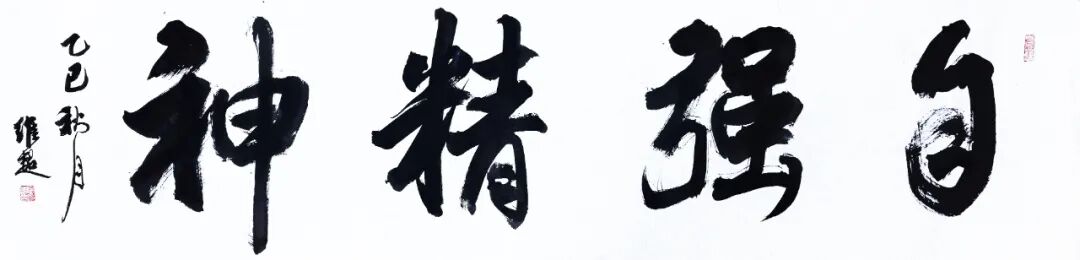 自强精神
乙巳秋月
维